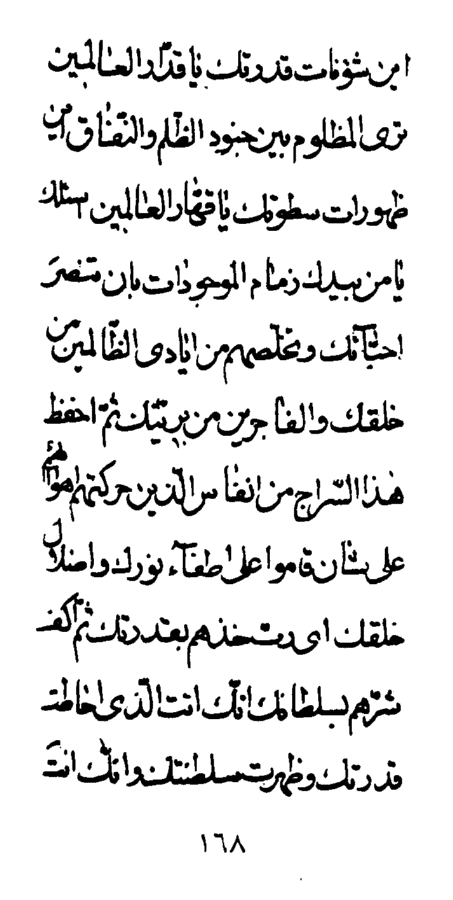 این شؤنات قدرتك یا قدّار العالمین
تری المظلوم بین جنود الظّلم و النّفاق این
ظهورات سطوتك یا قهّار العالمین اسئلك
یا من بیدك زمام الموجودات بان تنصر
احبّآئك و تخلّصهم من ایادی الظّالمین من
خلقك و الفاجرین من بریّتك ثمّ احفظ
هذا السّراج من انفاس الّذین حرکتهم اهوائهم
علی شأن قاموا علی اطفآء نورك و اضلال
خلقك ای ربّ خذهم بقدرتك ثمّ اکف
شرّهم بسلطانك انّك انت الّذی احاطت
قدرتك و ظهرت سلطنتك و انّك انت
١٦٨